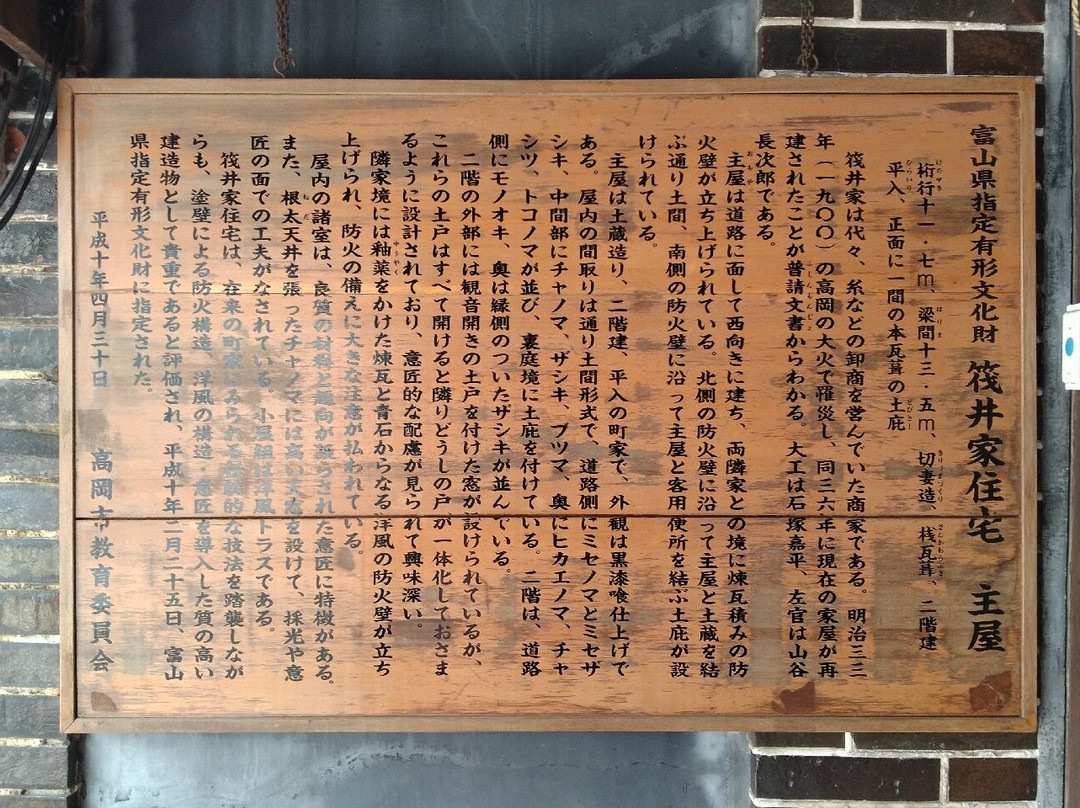 富山県指定有形文化財 筏井家住宅 主屋
桁行十一・七m、梁間十三・五m、切妻造、桟瓦葺、二階建
平入、正面に一間の本瓦葺の土庇
筏井家は代々、糸などの卸商を営んでいた商家である。明治三三
年(一九〇〇)の高岡の大火で罹災し、同三六年に現在の家屋が再
建されたことが普請文書からわかる。大工は石塚嘉平、左官は山谷
長次郎である。
主屋は道路に面して西向きに建ち、両隣家との境に煉瓦積みの防
火壁が立ち上げられている。北側の防火壁に沿って主屋と土蔵を結
ぶ通り土間、南側の防火壁に沿って主屋と客用便所を結ぶ土庇が設
けられている。
主屋は土蔵造り、二階建、平入の町家で、外観は黒漆喰仕上げで
ある。屋内の間取りは通り土間形式で、道路側にミセノマとミセザ
シキ、中間部にチャノマ、ザシキ、ブツマ、奥にヒカエノマ、チャ
シツ、トコノマが並び、裏庭境に土庇を付けている。二階は、道路
側にモノオキ、奥は縁側のついたザシキが並んでいる。
二階の外部には観音開きの土戸を付けた窓が設けられているが、
これらの土戸はすべて開けると隣りどうしの戸が一体化しておさま
るように設計されており、意匠的な配慮が見られて興味深い。
隣家境には釉薬をかけた煉瓦と青石からなる洋風の防火壁が立ち
上げられ、防火の備えに大きな注意が払われている。
屋内の諸室は、良質の材料と趣向が凝らされた意匠に特徴がある。
また、根太天井を張ったチャノマには高い天窓を設けて、採光や意
匠の面での工夫がなされている。小屋組は洋風トラスである。
筏井家住宅は、在来の町家にみられる伝統的な技法を踏襲しなが
らも、塗壁による防火構造、洋風の構造・意匠を導入した質の高い
建造物として貴重であると評価され、平成十年二月二十五日、富山
県指定有形文化財に指定された。
平成十年四月三十日 高岡市教育委員会